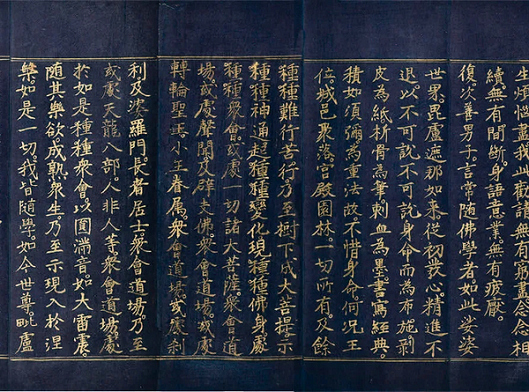 生煩惱盡我此勸請無有窮盡念念相
續無有間斷。身語意業。無有疲厭。
復次善男子。言常隨佛學者如此娑婆
世界。毘盧遮那如來。從初發心。精進不
退。以不可說不可說身命而為布施。剝
皮為紙。析骨為筆。刺血為墨。書寫經典。
積如須彌。為重法故。不惜身命。何況王
位。城邑聚落。宮殿園林。一切所有。及餘
種種難行苦行。乃至樹下成大菩提示
種種神通。起種種變化。現種種佛身。處
種種眾會。或處一切諸大菩薩。眾會道
場。或處聲聞及辟支佛。眾會道場。或處
轉輪聖王小王眷屬。眾會道場。或處剎
利及婆羅門。長者居士。眾會道場。乃至
或處天龍八部。人非人等。眾會道場。處
於如是種種眾會。以圓滿音。如大雷震。
隨其樂欲。成熟眾生。乃至示現入於涅
槃。如是一切。我皆隨學。如今世尊。毗盧